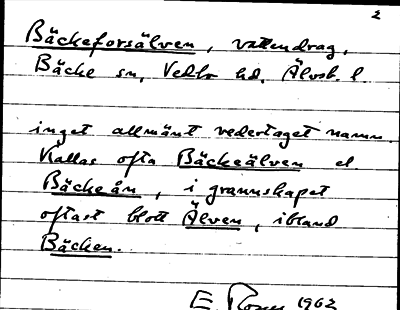 2
Bäckeforsälven, vattendrag,
Bäcke sn, Vedbo hd, Älvsb. l.
inget allmänt vedertaget namn.
Kallas ofta Bäckeälven el.
Bäckeån, i grannskapet
oftast blott Älven, ibland
Bäcken.
E. 1962